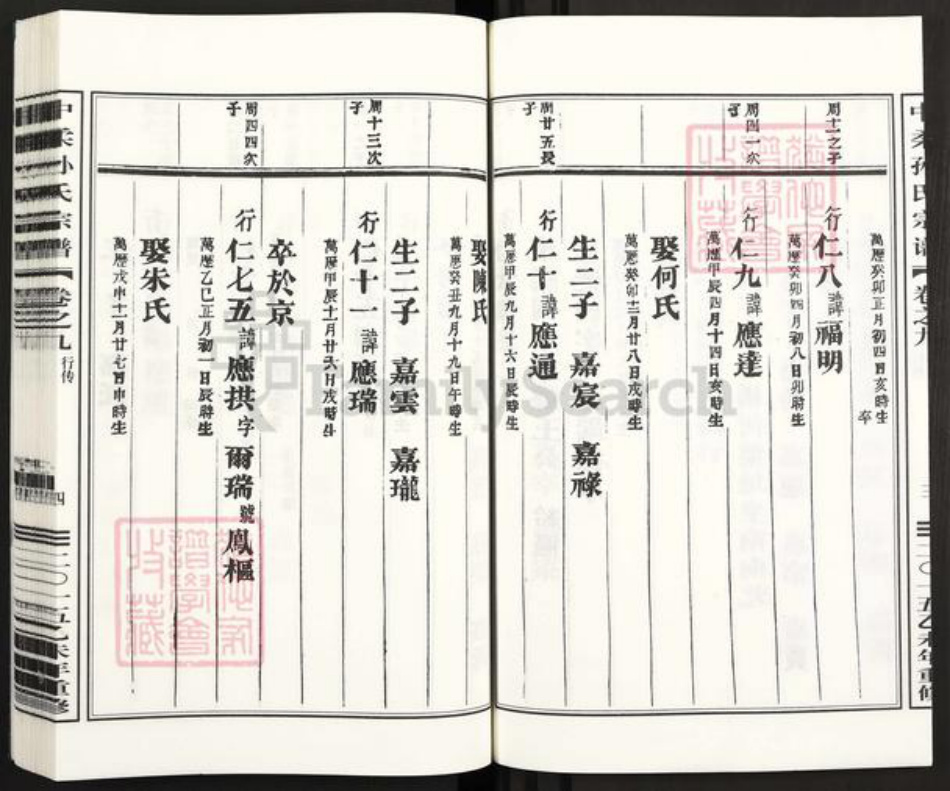 萬歷癸卯正月初四日亥時生
卒
周十二之子
行仁八諱福明
萬歷癸卯四月初八日卯時生
周四一次子
行仁九諱應達
萬歷甲辰四月十四日亥時生
娶何氏
萬歷癸卯十二月廿八日戌時生
生二子 嘉宸 嘉祿
周廿五長子
行仁十諱應通
萬歷甲辰九月十六日辰時生
娶陳氏
萬歷癸丑九月十九日午時生
生二子 嘉雲 嘉瓏
周十三次子
行仁十一諱應瑞
萬歷甲辰十一月廿六日戌時生
卒於京
周四四次子
行仁七五諱應拱字爾瑞號鳳樞
萬歷乙巳正月初一日辰時生
娶朱氏
萬歷戊申十一月廿七日申時生
中柔孙氏宗谱【卷之九 行传
四
二〇一五乙未年重修
中柔孙氏宗谱【卷之九
三
二〇一五乙未年重修
FamilySearch